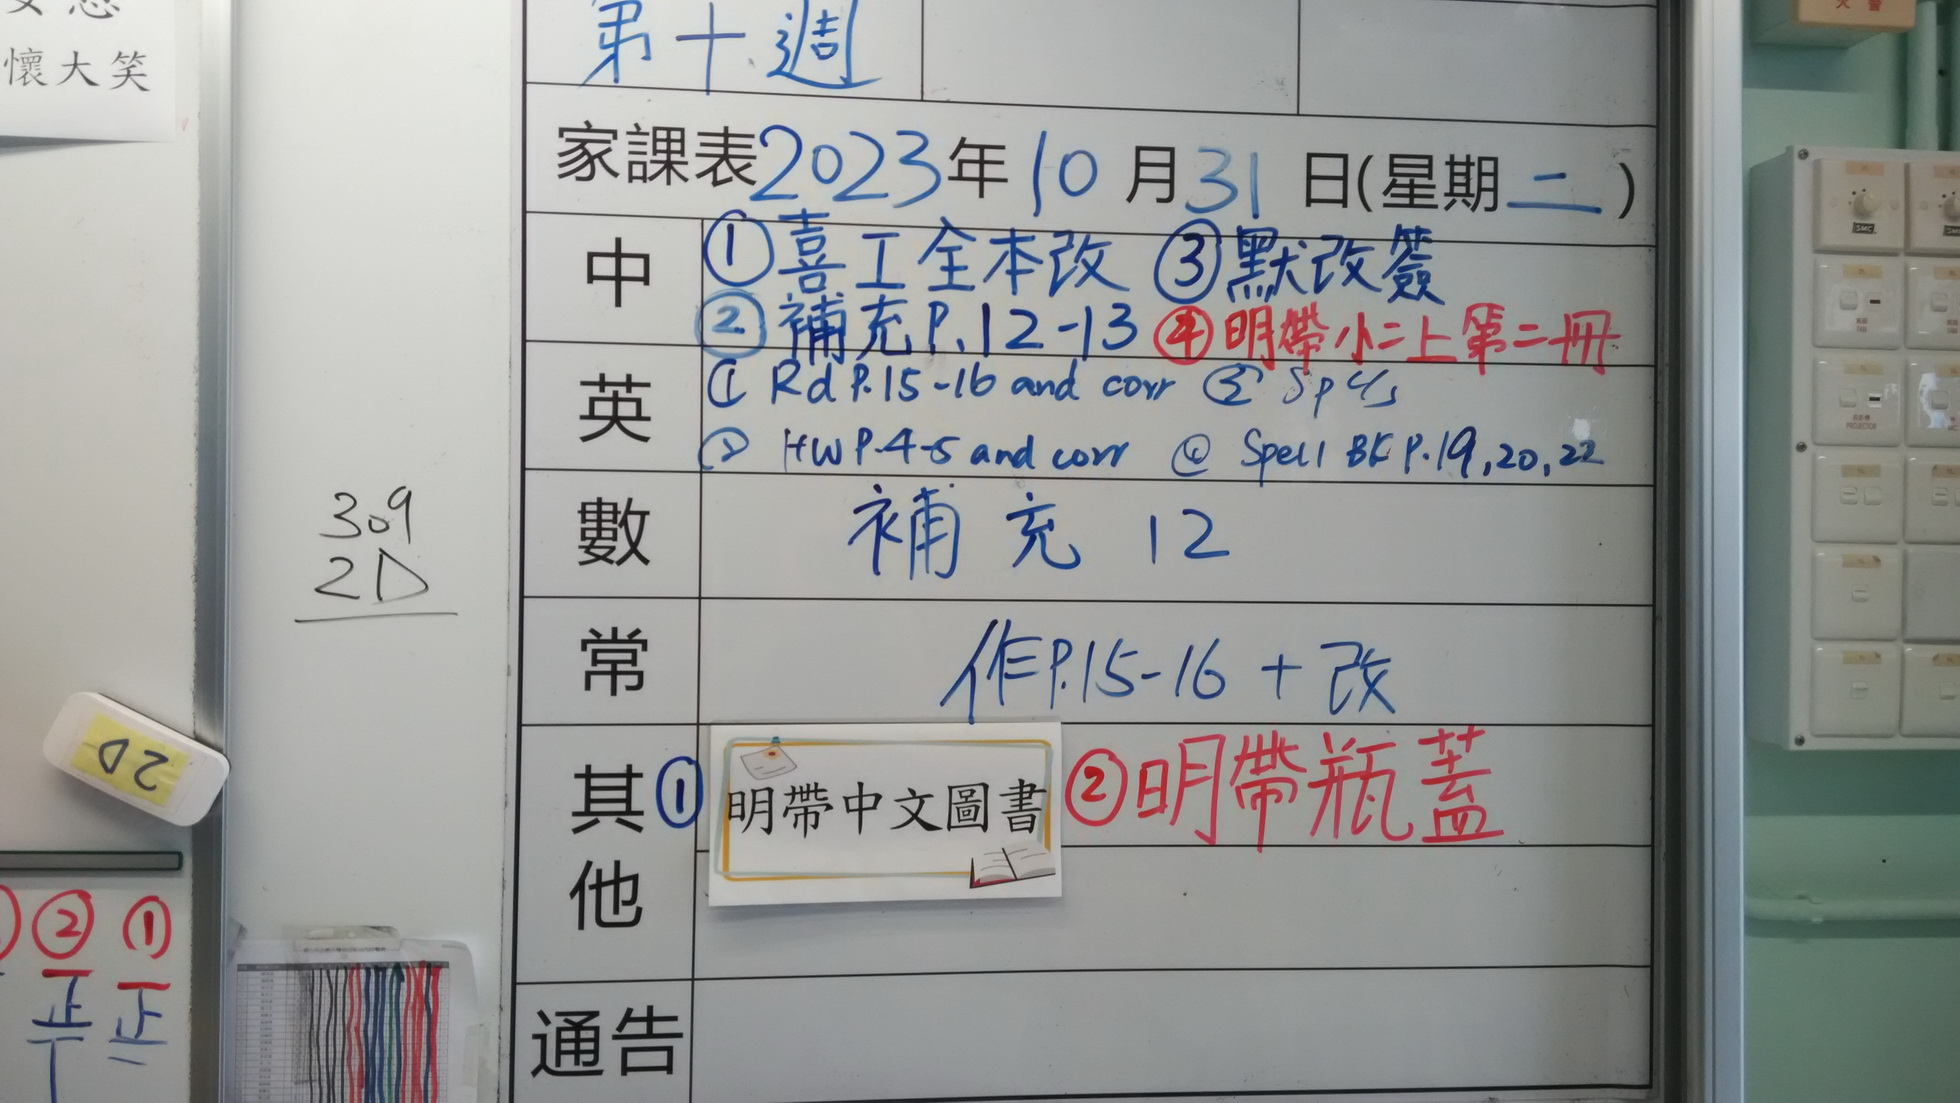 懷大笑
第十週
家課表2023年10月31日(星期二)
中
①喜工全本改 ③默改簽
②補充P.12-13 ④明帶小二上第二冊
英
① Rd P.15-16 and corr
② HW P.4-5 and corr ④ Spell BK P.19,20,22
數
補充 12
常
作P.15-16 + 改
其他
① 明帶中文圖書 ②明帶瓶蓋
通告
309
2D
2D
② ①
正 正
PROJECTOR
SMC